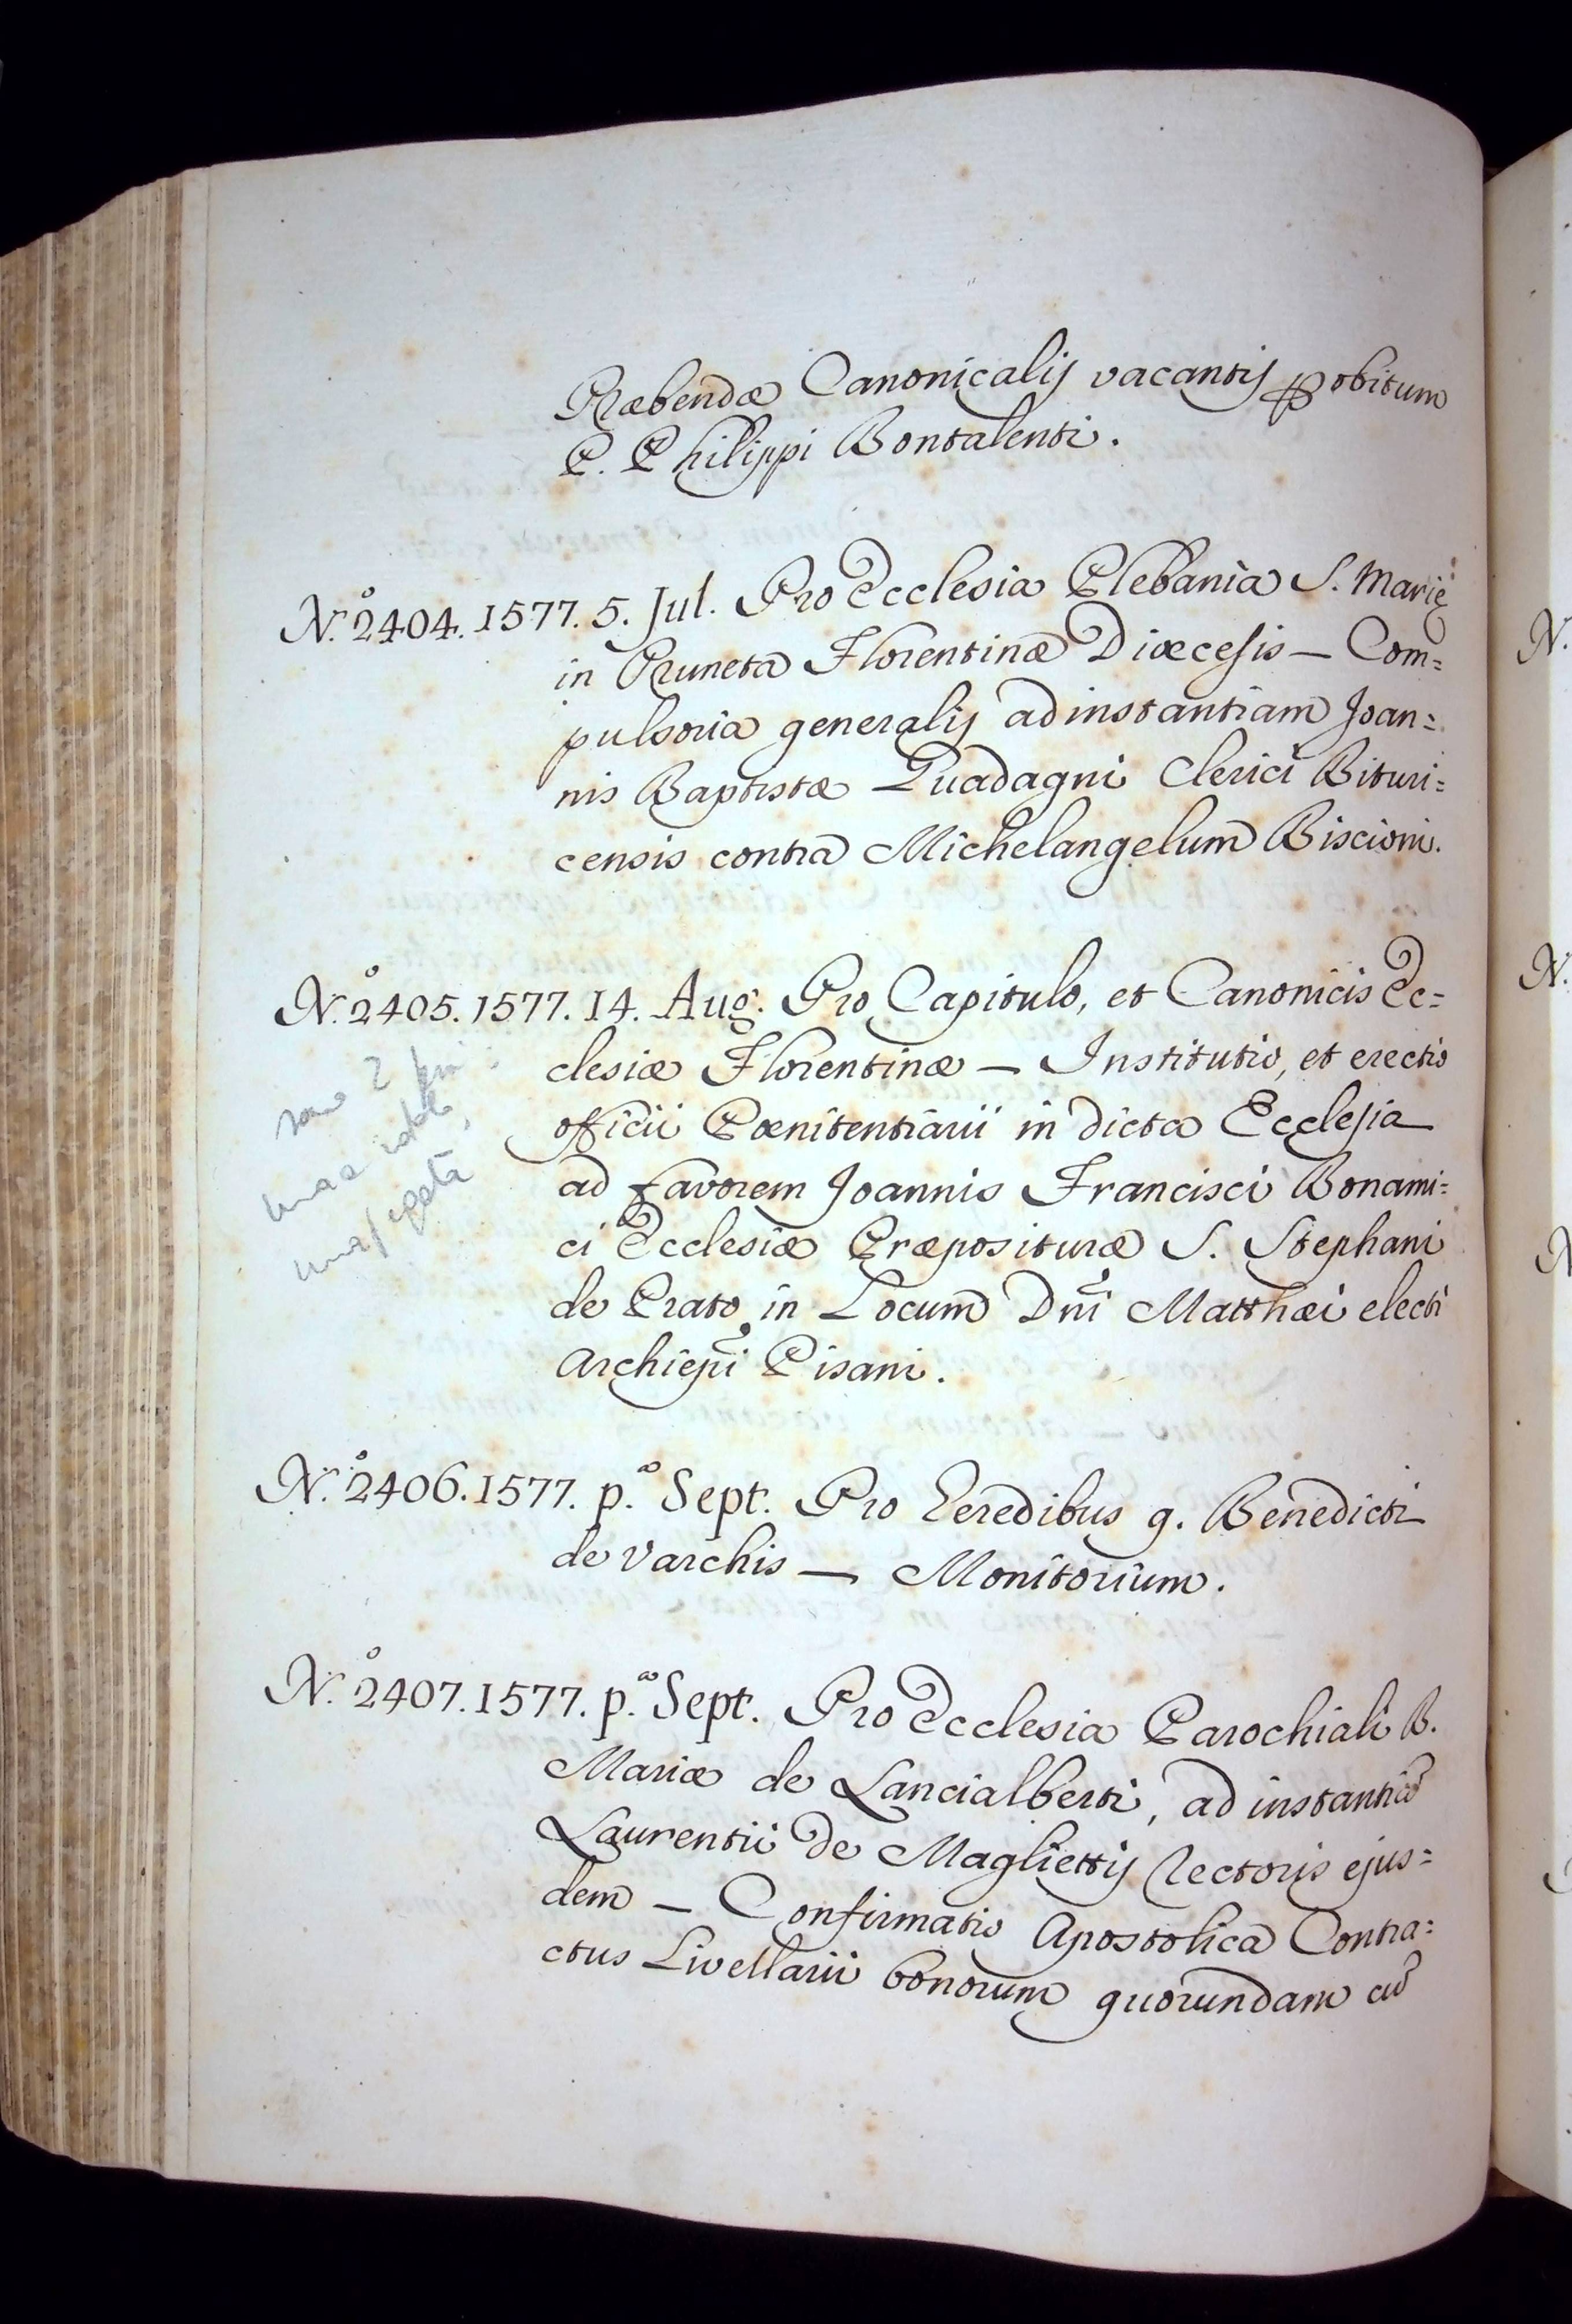 Præbendæ Canonicalis vacantis p obitum
P. Philippi Bontalenti.
N.º 2404. 1577. 5. Jul. Pro Ecclesia Plebania S. Marię
in Pruneta Florentinæ Diœcesis — Com=
pulsoria generalis ad instantiam Joan=
nis Baptistæ Guadagni Clerici Bituri=
censis contra Michelangelum Biscioni.
N.º 2405. 1577. 14. Aug. Pro Capitulo, et Canonicis Ec=
clesiæ Florentinæ — Institutio, et erectio
officii Pœnitentiarii in dicta Ecclesia
ad favorem Joannis Francisci Bonami=
ci Ecclesiæ Præpositura S. Stephani
de Prato in Locum Dni Matthæi electi
Archiepi Pisani.
N.º 2406. 1577. p.º Sept. Pro Heredibus q. Benedicti
de Varchis — Monitorium.
N.º 2407. 1577. p.º Sept. Pro Ecclesia Parochiali B.
Mariæ de Lancialberti, ad instantiã
Laurentii de Magliettis Rectoris ejus=
dem — Confirmatio Apostolica Contra=
ctus Livellarii bonorum quorundam cũ
sono 2
una
una segata
N.
N.